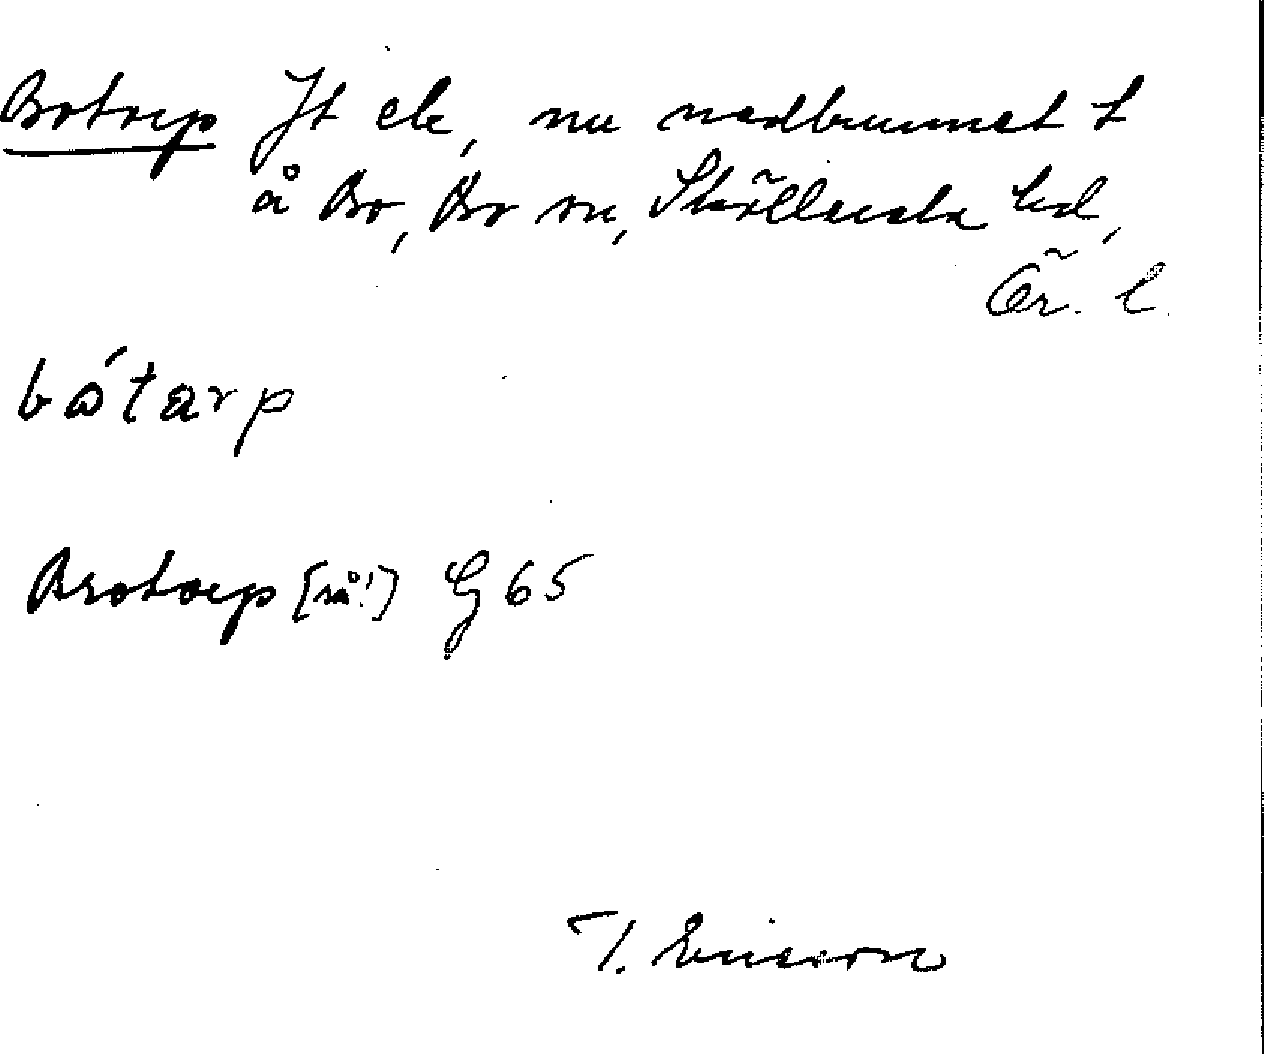 Botorp Jt ek, nu nedbrunnet t
å Bo, Bo sn, Sköllersta hd,
Ör. l.
bótarp
Brotorp [så!] G 65
T. Ericson